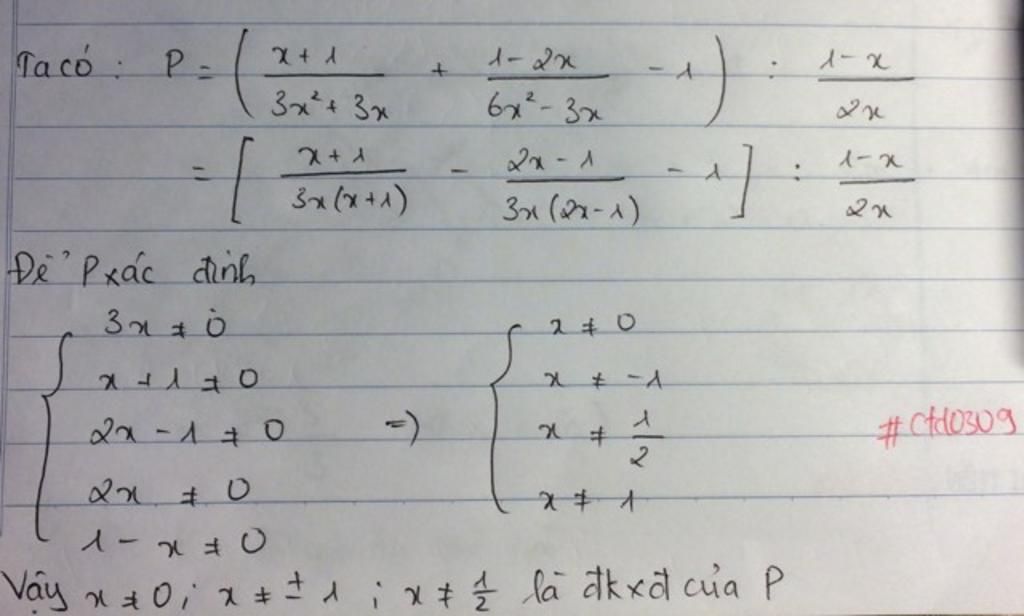 Ta có : P = ( (x + 1)/(3x² + 3x) + (1 - 2x)/(6x² - 3x) - 1 ) : (1 - x)/(2x)
= [ (x + 1)/(3x(x+1)) - (2x - 1)/(3x(2x-1)) - 1 ] : (1-x)/(2x)
Để P xác định
{ 3x ≠ 0
x + 1 ≠ 0
2x - 1 ≠ 0
2x ≠ 0
1 - x ≠ 0
=> { x ≠ 0
x ≠ -1
x ≠ 1/2
x ≠ 1
#Ctd0309
Vậy x ≠ 0 ; x ≠ ± 1 ; x ≠ 1/2 là đkxđ của P